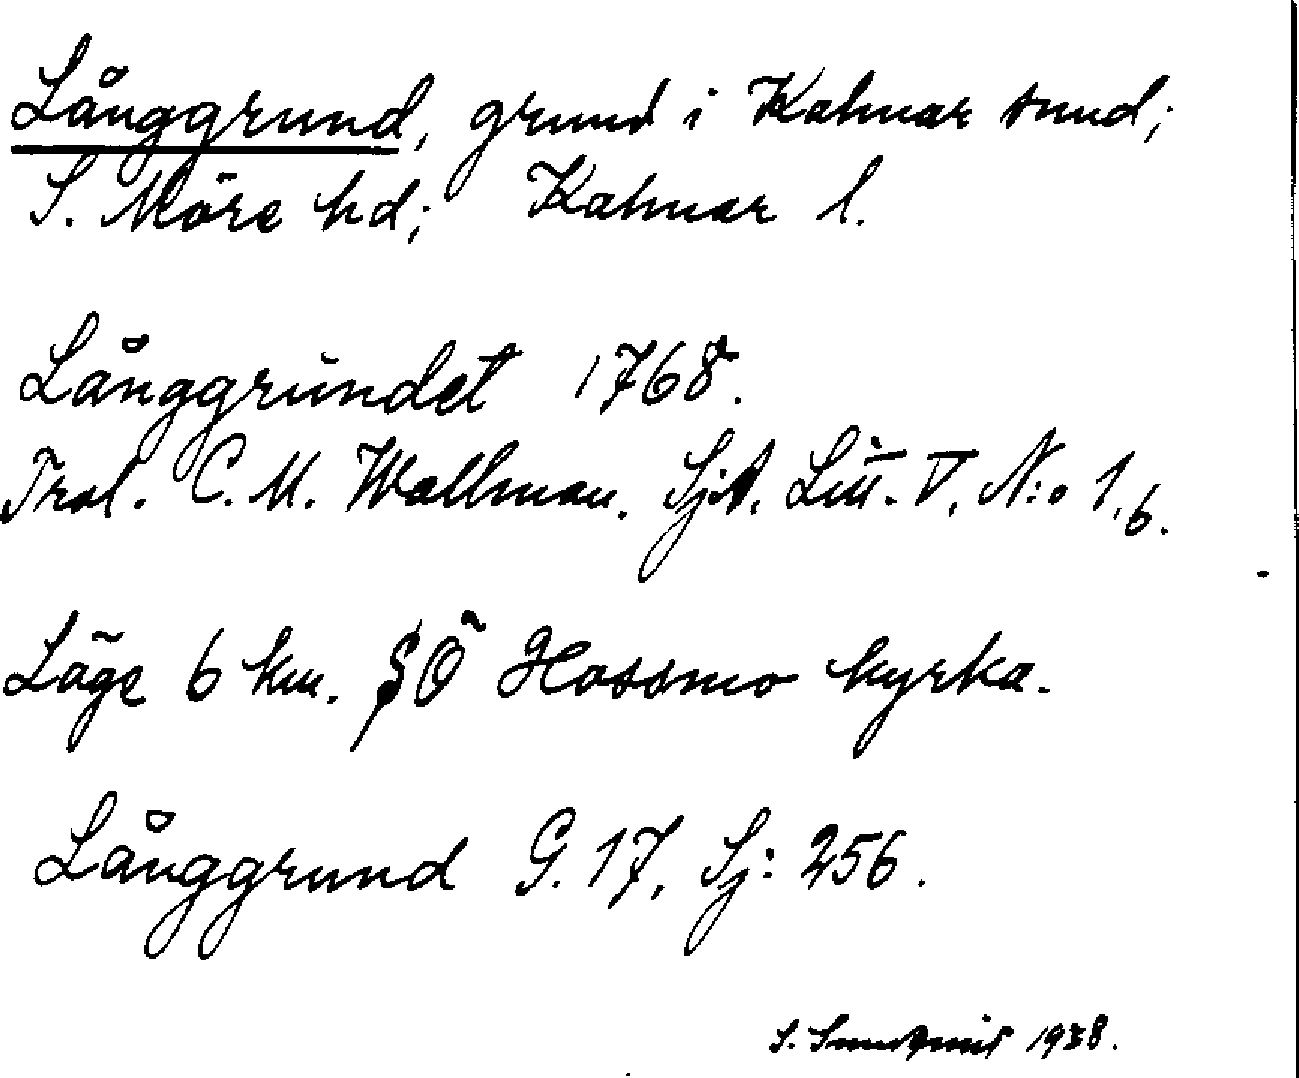 Långgrund, grund i Kalmar sund;
S. Möre hd; Kalmar l.
Långgrundet 1768.
Trol. C. M. Wallman. SjA. Litt. V. N:o 1,6.
Läge 6 km. SÖ Hossmo kyrka.
Långgrund G. 17, Sj: 256.
S. Sundqvist 1938.